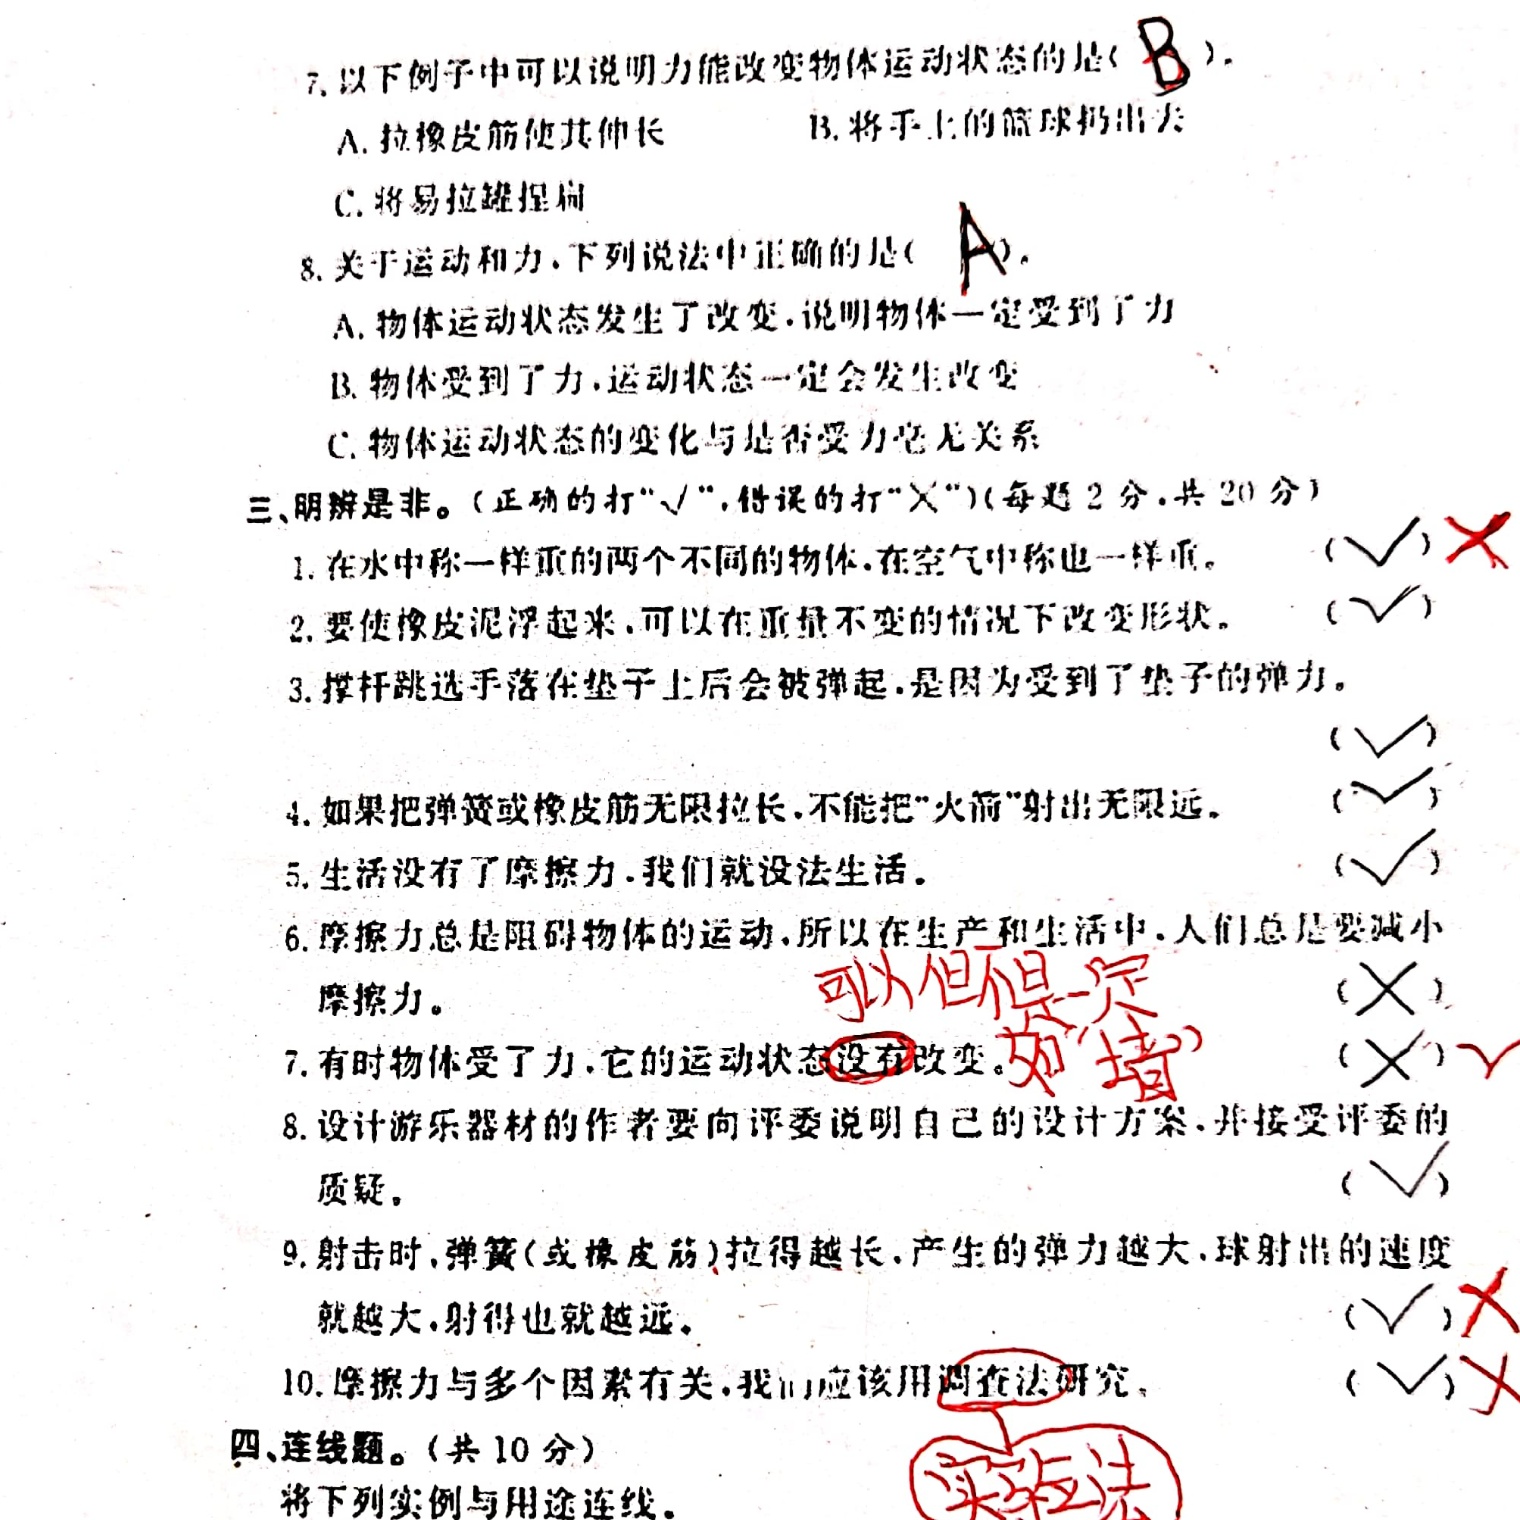 7. 以下例子中可以说明力能改变物体运动状态的是( B )。
A. 拉橡皮筋使其伸长 B. 将手上的篮球扔出去
C. 将易拉罐捏扁
8. 关于运动和力,下列说法中正确的是( A )。
A. 物体运动状态发生了改变,说明物体一定受到了力
B. 物体受到了力,运动状态一定会发生改变
C. 物体运动状态的变化与是否受力毫无关系
三、明辨是非。(正确的打“√”,错误的打“X”)(每题 2 分,共 20 分)
1. 在水中称一样重的两个不同的物体,在空气中称也一样重。 (√) X
2. 要使橡皮泥浮起来,可以在重量不变的情况下改变形状。 (√)
3. 撑杆跳选手落在垫子上后会被弹起,是因为受到了垫子的弹力。
(√)
4. 如果把弹簧或橡皮筋无限拉长,不能把“火箭”射出无限远。 (√)
5. 生活没有了摩擦力,我们就没法生活。 (√)
6. 摩擦力总是阻碍物体的运动,所以在生产和生活中,人们总是要减小
摩擦力。 可以但不是一定 (X)
7. 有时物体受了力,它的运动状态没有改变。 如“堵” (X) √
8. 设计游乐器材的作者要向评委说明自己的设计方案,并接受评委的
质疑。 (√)
9. 射击时,弹簧(或橡皮筋)拉得越长,产生的弹力越大,球射出的速度
就越大,射得也就越远。 (√) X
10. 摩擦力与多个因素有关,我们应该用调查法研究。 (√) X
四、连线题。(共 10 分) 实验法
将下列实例与用途连线。